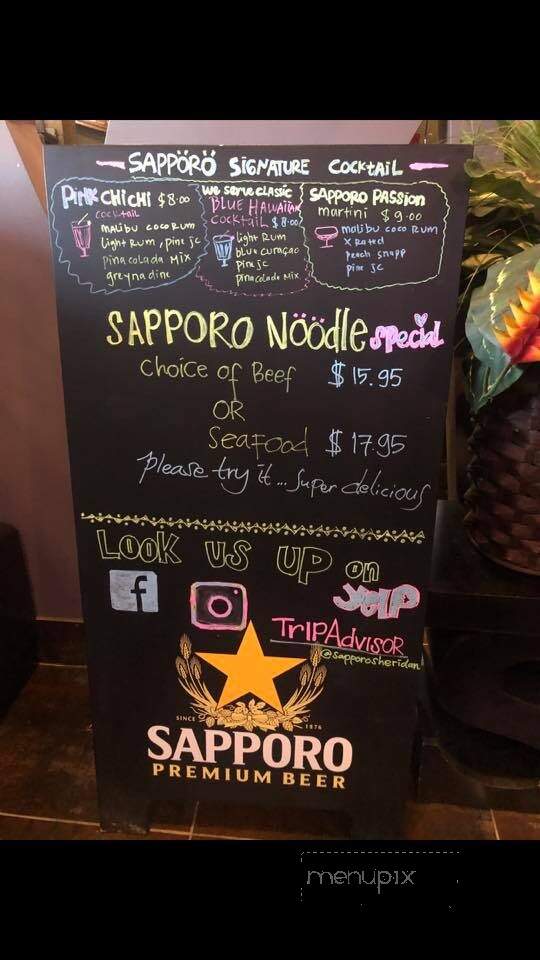 SAPPÖRÖ SIGNATURE COCKtAiL
Pink CHiCHi $8.00
COCKtAiL
MALIBU COCO RUM
Light Rum, pine jc
pina colada mix
greynadine
We serve classic
BLUE HAWAIIAN
COCKtaiL $8.00
light Rum
blue curaçao
pine jc
pina colada mix
SAPPORO PASSion
martini $9.00
malibu coco RUM
X Rated
peach snapp
pine jc
SAPPORO NöödLe special
Choice of Beef $15.95
OR
SeaFood $17.95
please try it... super delicious
LOOK US UP on
f
yelp
TRIPAdvISOR
@sapporosheridan
SINCE 1876
SAPPORO
PREMIUM BEER
menupix